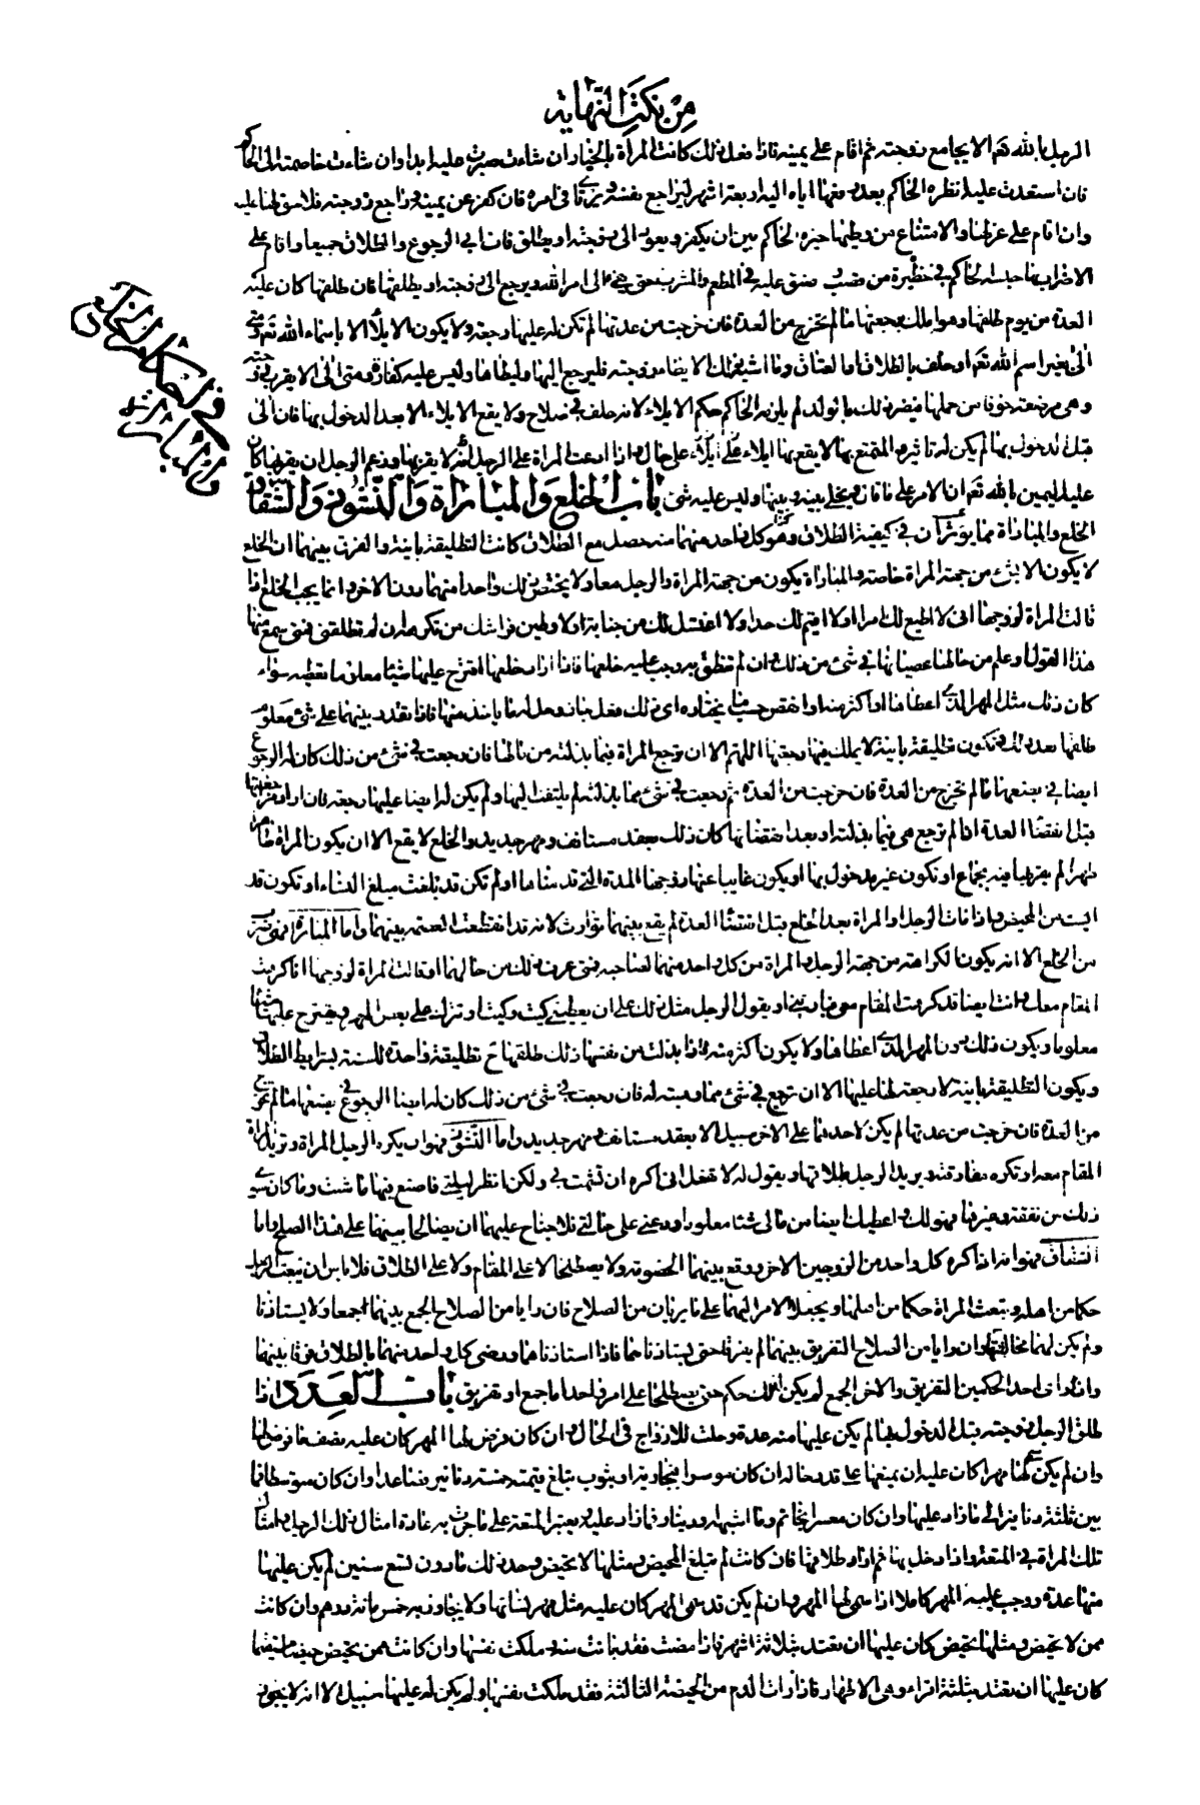 من نكت النهاية
الرجل بالله تعم الا يجامع زوجته ثم اقام على يمينه فاذا فعل ذلك كانت المرأة بالخيار ان شاءت صبرت عليه ابدا وان شاءت خاصمته الى الحاكم
فان استعدت عليه انظره الحاكم بعد رفعها اياه اليه اربعة اشهر ليراجع نفسه ويرتأى في امره فان كفر عن يمينه وراجع زوجته فلا حق لها عليه
وان اقام على عزلها والامتناع من وطيها خيره الحاكم بين ان يكفر ويعود الى زوجته او يطلق فان ابى الرجوع والطلاق جميعا واقام على
الاضرار بها حبسه الحاكم في حظيرة من قصب وضيق عليه في المطعم والمشرب حتى يفئ الى امر الله ويرجع الى زوجته او يطلقها فان طلقها كان عليه
العدة من يوم طلقها وهو املك برجعتها ما لم تخرج من العدة فان خرجت من عدتها لم تكن له عليها رجعة ولا يكون الايلاء الا باسماء الله تعم ومتى
الى بغير اسم الله تعم او حلف بالطلاق او العتاق وما اشبه ذلك الا يطا زوجته فليرجع اليها وليطاها وليس عليه كفارة ومتى الى الا يقرب زوجته
وهي مرضعة خوفا من حملها فيضر ذلك بالولد لم يلزمه الحاكم حكم الايلاء لانه حلف في صلاح ولا يقع الايلاء الا بعد الدخول بها فان الى
قبل الدخول بها لم يكن له تاثير والمتمتع بها لا يقع بها ايلاء على حال واذا ادعت المرأة على الرجل انه لا يقربها وزعم الرجل ان يقربها كان
عليه اليمين بالله تعم ان الامر على ما قال ويخلى بينه وبينها وليس عليه شئ باب الخلع والمباراة والنشوز والشقاق
الخلع والمباراة مما يؤثران في كيفية الطلاق وهو كل واحد منهما متى حصل مع الطلاق كانت التطليقة باينة والفرق بينهما ان الخلع
لا يكون الا بشئ من جهة المرأة خاصة والمباراة يكون من جهة المرأة والرجل معا ولا يختص ذلك واحدا منهما دون الاخر وانما يجب الخلع اذا
قالت المرأة لزوجها انى لا اطيع لك امرا ولا اقيم لك حدا ولا اغتسل لك من جنابة ولاوطين فراشك من تكرهه ان لم تطلقنى فمتى سمع منها
هذا القول او علم من حالها عصيانها في شئ من ذلك وان لم تنطق به وجب عليه خلعها فاذا اراد خلعها اقترح عليها شيئا معلوما تعطيه سواء
كان ذلك مثل المهر الذي اعطاها او اكثر منه او انقص حسب ما يختاره اى ذلك فعل جاز وحل له ما ياخذ منها فاذا تقرر بينهما على شئ معلوم
طلقها بعد ذلك وتكون تطليقة باينة لا يملك فيها رجعتها اللهم الا ان ترجع المرأة فيما بذلته من مالها فان رجعت في شئ من ذلك كان له الرجوع
ايضا في بضعها ما لم تخرج من العدة فان خرجت من العدة ثم رجعت في شئ مما بذلته لم يلتفت اليها ولم يكن له ايضا عليها رجعة فان اراد مراجعتها
قبل انقضاء العدة اذا لم ترجع هي فيما بذلته او بعد انقضائها كان ذلك بعقد مستانف ومهر جديد والخلع لا يقع الا ان يكون المرأة طاهرا
طهرا لم يقربها فيه بجماع او تكون غير مدخول بها او يكون غايبا عنها زوجها المدة التي قدمناها او لم تكن قد بلغت مبلغ النساء او تكون قد
ايست من المحيض واذا مات الرجل او المرأة بعد الخلع قبل انقضاء العدة لم يقع بينهما توارث لانه قد انقطعت العصمة بينهما واما المباراة فهي ضرب
من الخلع الا انه يكون الكراهة من جهة الرجل والمرأة من كل واحد منهما لصاحبه فمتى عرف ذلك من حالهما او قالت المرأة لزوجها انا كرهت
المقام معك وانت ايضا قد كرهت المقام معي فبارئني او يقول الرجل مثل ذلك على ان يعطيني كيت وكيت او تتركه على بعض المهر ويقترح عليها شيئا
معلوما ويكون ذلك دون المهر الذي اعطاها ولا يكون اكثر منه فاذا بذلت من نفسها ذلك طلقها ح تطليقة واحدة للسنة بشرايط الطلاق
ويكون التطليقة باينة لا رجعة له عليها الا ان ترجع في شئ مما وهبته له فان رجعت في شئ من ذلك كان له ايضا الرجوع في بضعها ما لم تخرج
من العدة فان خرجت من عدتها لم يكن لاحدهما على الاخر سبيل الا بعقد مستانف ومهر جديد واما النشوز فهو ان يكره الرجل المرأة وتريد المرأة
المقام معه او تكره مفارقته ويريد الرجل طلاقها ويقول له لا تفعل انى اكره ان تشمت بي ولكن انظر ليلتي فاصنع فيها ما شئت وما كان سوى
ذلك من نفقة وغيرها فهو لك واعطيك ايضا من مالي شيئا معلوما ودعني على حالتي فلا جناح عليهما ان يصالحا بينهما على هذا الصلح واما
الشقاق فهو انه اذا كره كل واحد من الزوجين الاخر ووقع بينهما الخصومة ولا يصطلحا لا على المقام ولا على الطلاق فلا باس ان يبعث الرجل
حكما من اهله وتبعث المرأة حكما من اهلها ويجعلا الامر اليهما على ما يريان من الصلاح فان رايا من الصلاح الجمع بينهما جمعا ولا يستاذنا
ولم يكن لهما مخالفتهما وان رايا من الصلاح التفريق بينهما لم يفرقا حتى يستاذناهما فاذا استاذناهما ورضى كل واحد منهما بالطلاق فرقا بينهما
وان راى احد الحكمين التفريق والاخر الجمع لم يكن لذلك حكم حتى يصطلحا على امر واحد اما جمع او تفريق باب العدد اذا
طلق الرجل زوجته قبل الدخول بها لم يكن عليها منه عدة وحلت للازواج في الحال وان كان فرض لها المهر كان عليه نصف ما فرض لها
وان لم يكن سمى لها مهرا كان عليه ان يمتعها على قدر حاله ان كان موسرا بجارية او بثوب تبلغ قيمته خمسة دنانير فصاعدا وان كان متوسطا فما
بين ثلثة دنانير الى ما زاد عليها وان كان معسرا بخاتم وما اشبهه او دينار وما زاد عليه ويعتبر المتعة على ما جرت به عادة امثال ذلك الرجل وامثال
تلك المرأة في المتعة واذا دخل بها ثم اراد طلاقها فان كانت لم تبلغ المحيض ومثلها لا تحيض وحد ذلك ما دون تسع سنين لم يكن عليها
منها عدة ووجب عليه المهر كاملا اذا سمى لها المهر وان لم يكن قد سمى المهر كان عليه مثل مهر نسائها ولا يتجاوز به خمس مائة درهم وان كانت
ممن لا تحيض ومثلها تحيض كان عليها ان تعتد بثلاثة اشهر فاذا مضت فقد بانت منه وملكت نفسها وان كانت ممن تحيض حيضا مستقيما
كان عليها ان تعتد بثلثة اقراء وهي الاطهار فاذا رات الدم من الحيضة الثالثة فقد ملكت نفسها ولم يكن له عليها سبيل الا انه لا يجوز
في احكام الخلع
والمباراة